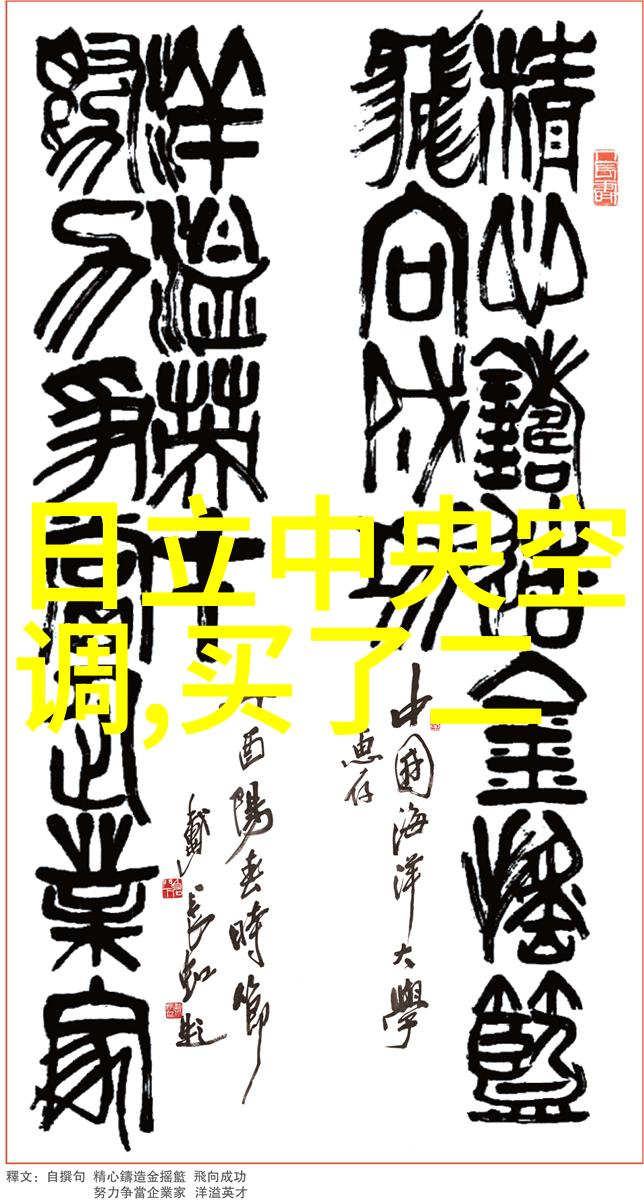 日立中央空
调,买了二
精心鑄造金摇籃
飛向成功
中國海洋大學
惠存
努力争當企業家
洋溢英才
丁酉陽春時節
戴長虹題
釋文：自撰句 精心鑄造金摇籃 飛向成功
努力争當企業家 洋溢英才